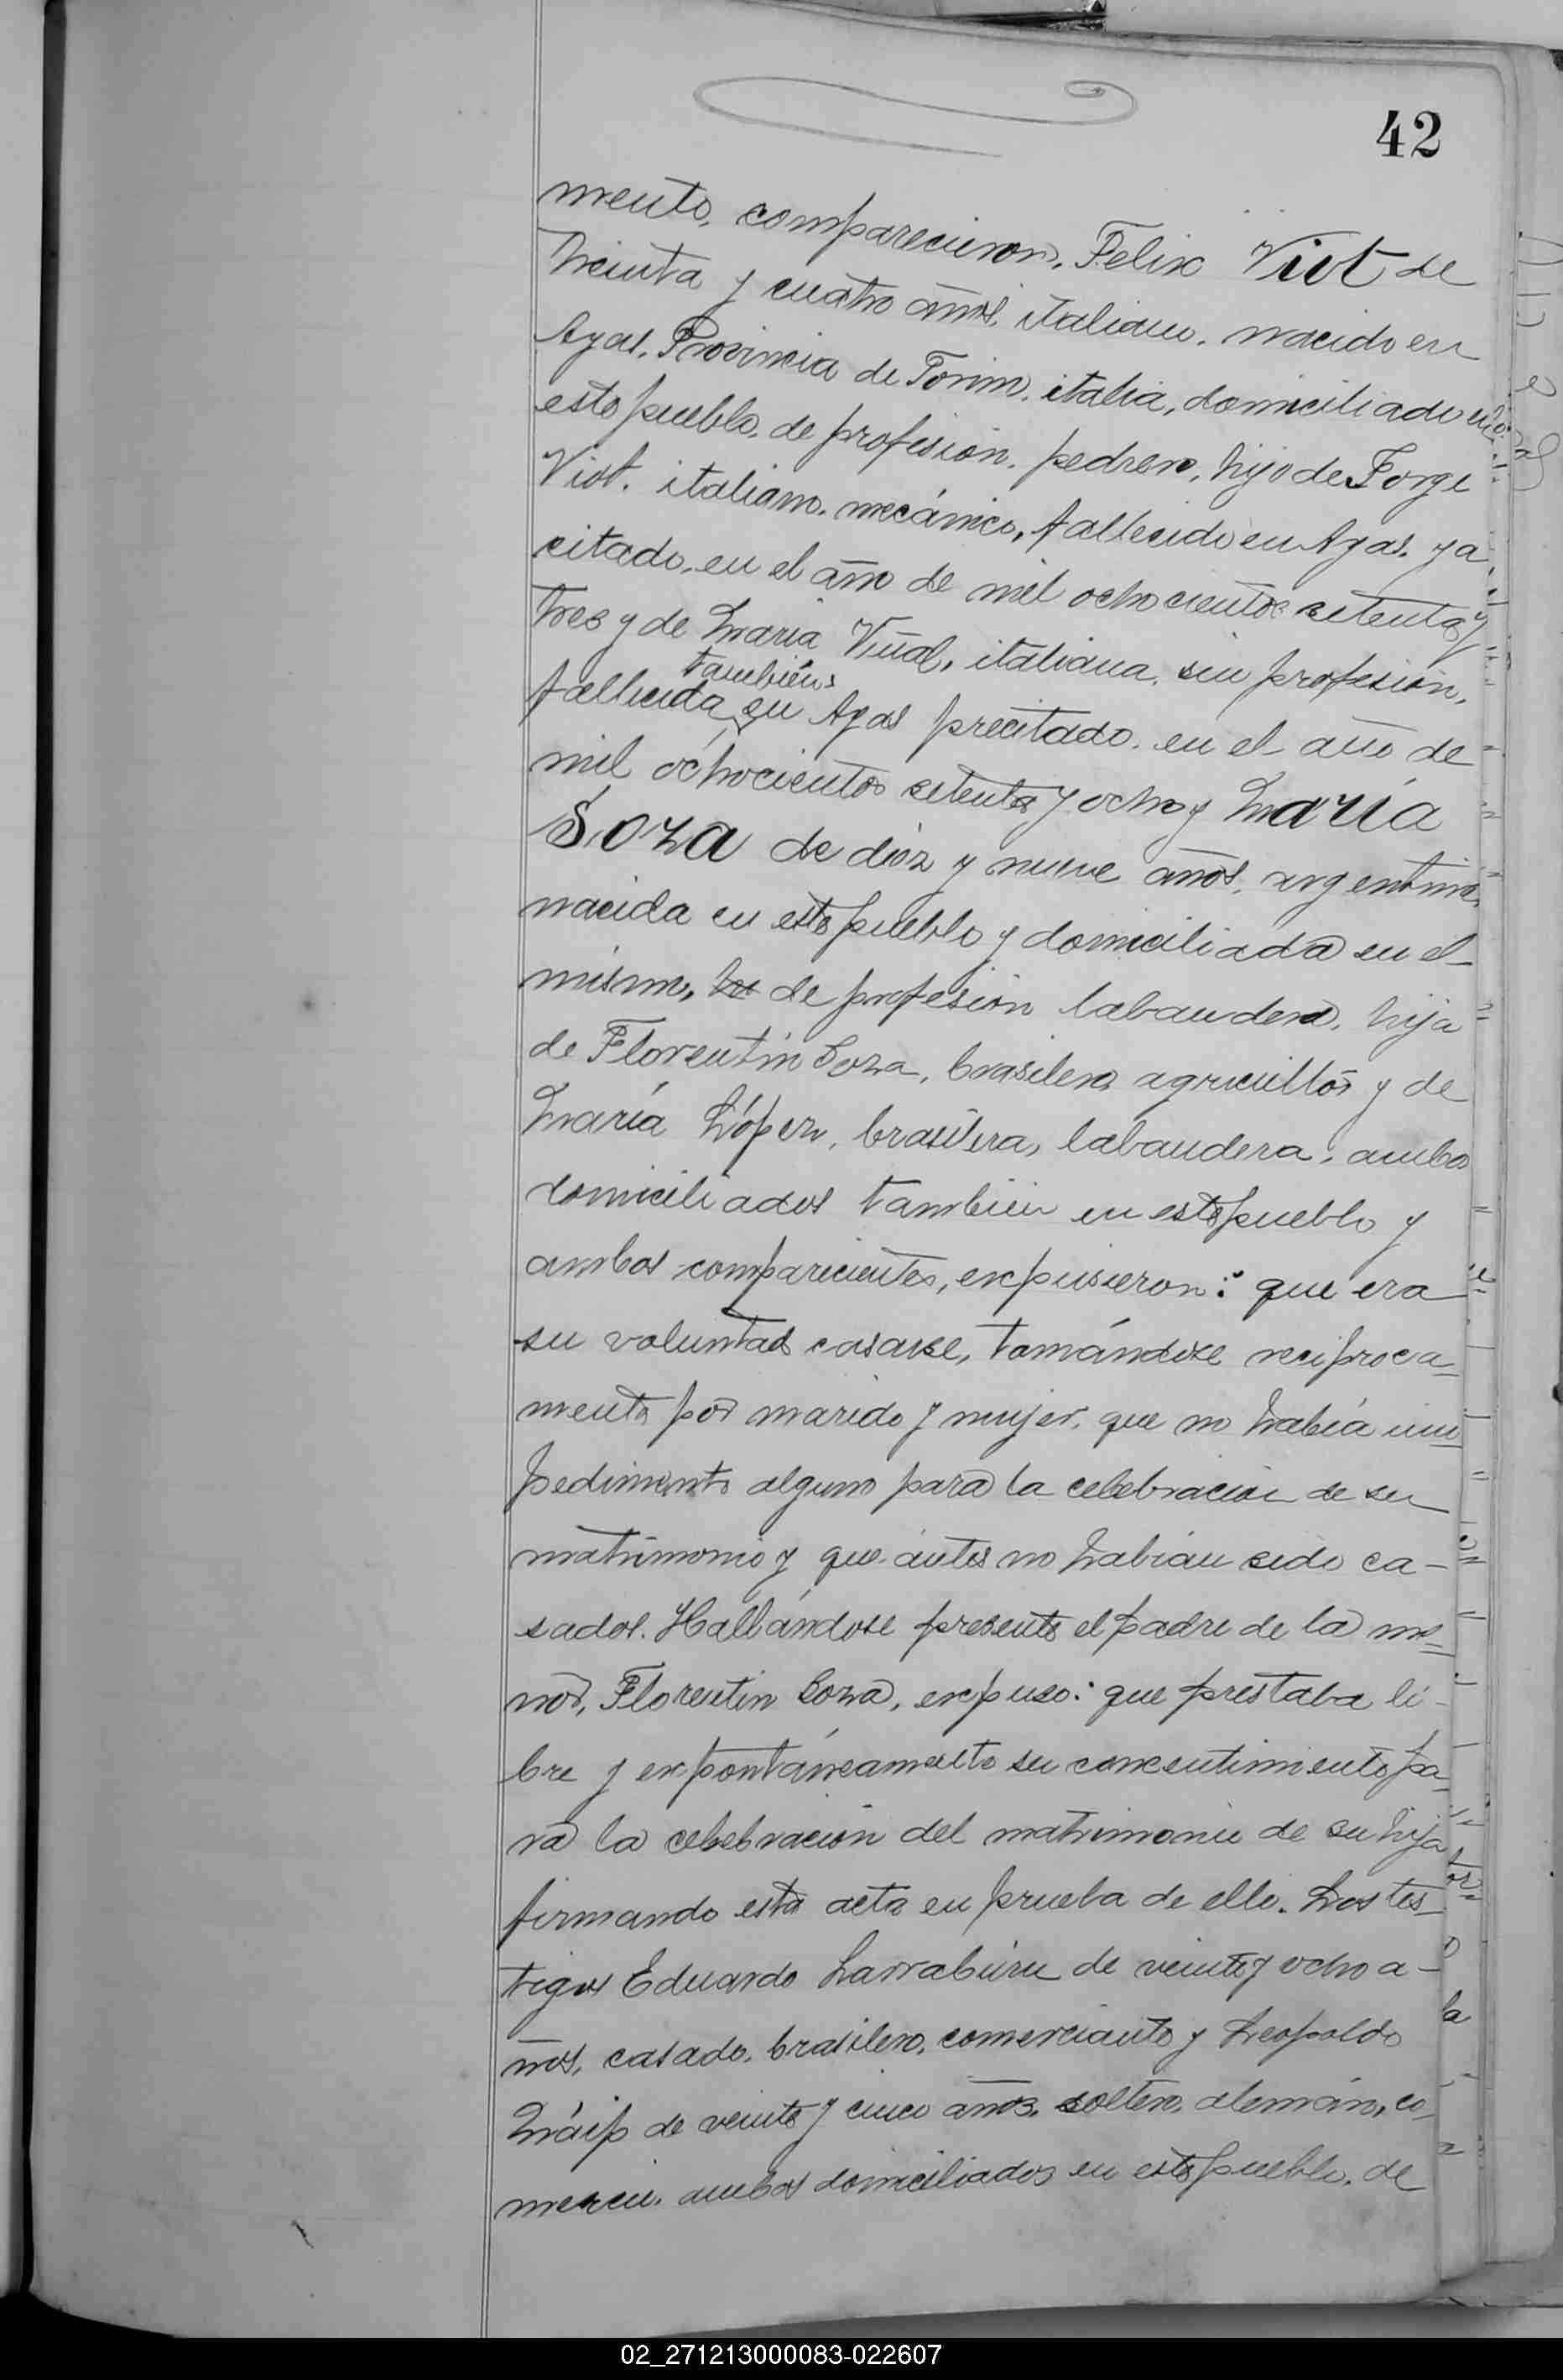 42
mento, comparecieron, Felix Viot de
treinta y cuatro años, italiano, nacido en
Ayas, Provincia de Torino, italia, domiciliado en
este pueblo, de profesión, pedrero, hijo de Jorge
Viot, italiano, mecánico, fallecido en Ayas, ya
citado, en el año de mil ochocientos setenta y
tres y de María italiana, sin profesión,
también
fallecida en Ayas precitado, en el año de
mil ochocientos setenta y ocho y María
Soza de diez y nueve años, argentina,
nacida en este pueblo y domiciliada en el
mismo, de profesión labandera, hija
de Florentin Soza, brasilero, agricultor y de
María López, brasilera, labandera, ambos
domiciliados también en este pueblo y
ambos comparecientes, expusieron: que era
su voluntad casarse, tomándose reciproca-
mente por marido y mujer, que no había im-
pedimento alguno para la celebración de su
matrimonio y que ántes no habían sido ca-
sados. Hallándose presente el padre de la me-
nor, Florentin Soza, expuso: que prestaba li-
bre y expontáneamente su concentimiento pa-
ra la celebración del matrimonio de su hija
firmando esta acta en prueba de ello. Los tes-
tigos Eduardo Larraburu de veinte y ocho a-
ños, casado, brasilero, comerciante y Leopoldo
de veinte y cinco años, soltero, alemán, co-
mercio, ambos domiciliados en este pueblo, de
02_271213000083-022607